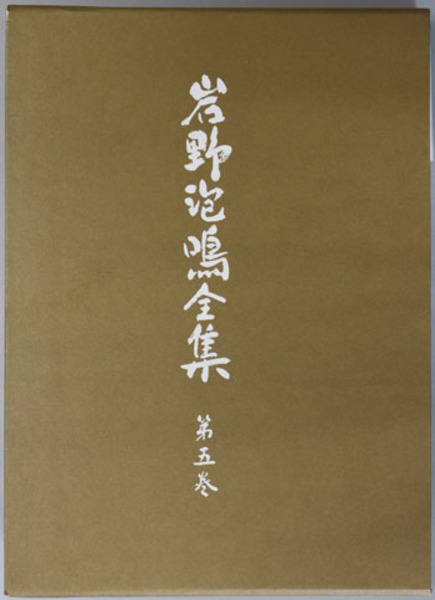 岩野泡鳴全集
第五巻